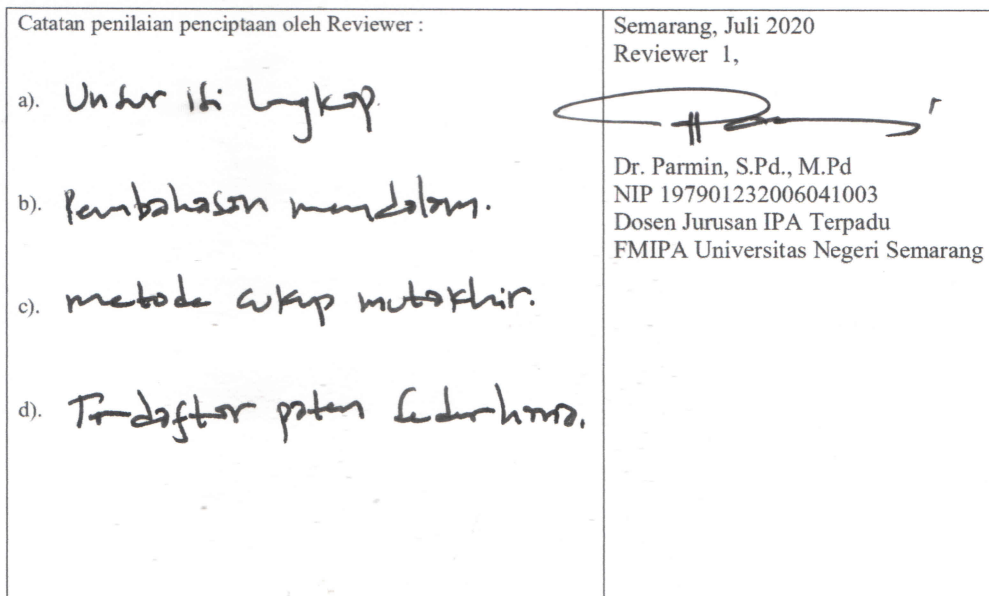 Catatan penilaian penciptaan oleh Reviewer :
a). Unsur isi lengkap.
b). Pembahasan mendalam.
c). metode cukup mutakhir.
d). Terdaftar paten sederhana.
Semarang, Juli 2020
Reviewer 1,
Dr. Parmin, S.Pd., M.Pd
NIP 197901232006041003
Dosen Jurusan IPA Terpadu
FMIPA Universitas Negeri Semarang